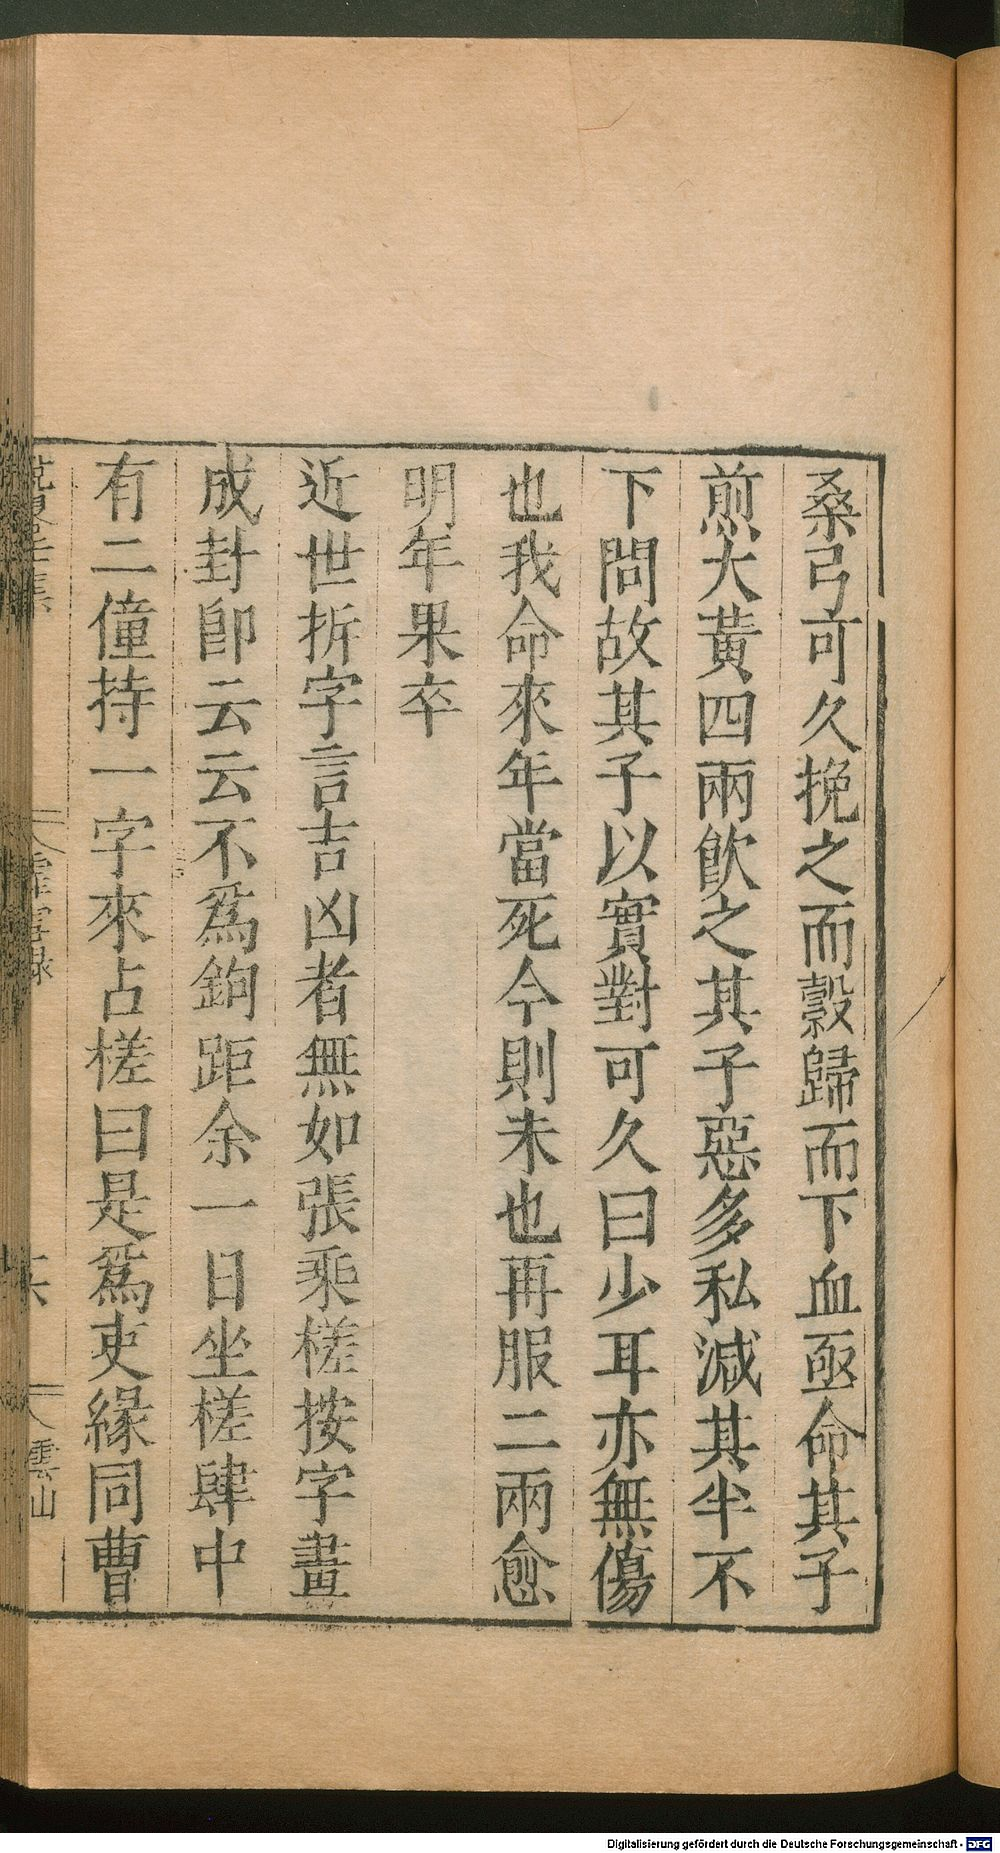 桑弓可久挽之而彀歸而下血亟命其子
煎大黃四兩飲之其子惡多私減其半不
下問故其子以實對可久曰少耳亦無傷
也我命來年當死今則未也再服二兩愈
明年果卒
近世拆字言吉凶者無如張乘槎按字畫
成封卽云云不爲鉤距余一日坐槎肆中
有二僮持一字來占槎曰是爲吏緣同曹
霏雪錄
六
雲山
Digitalisierung gefördert durch die Deutsche Forschungsgemeinschaft - DFG